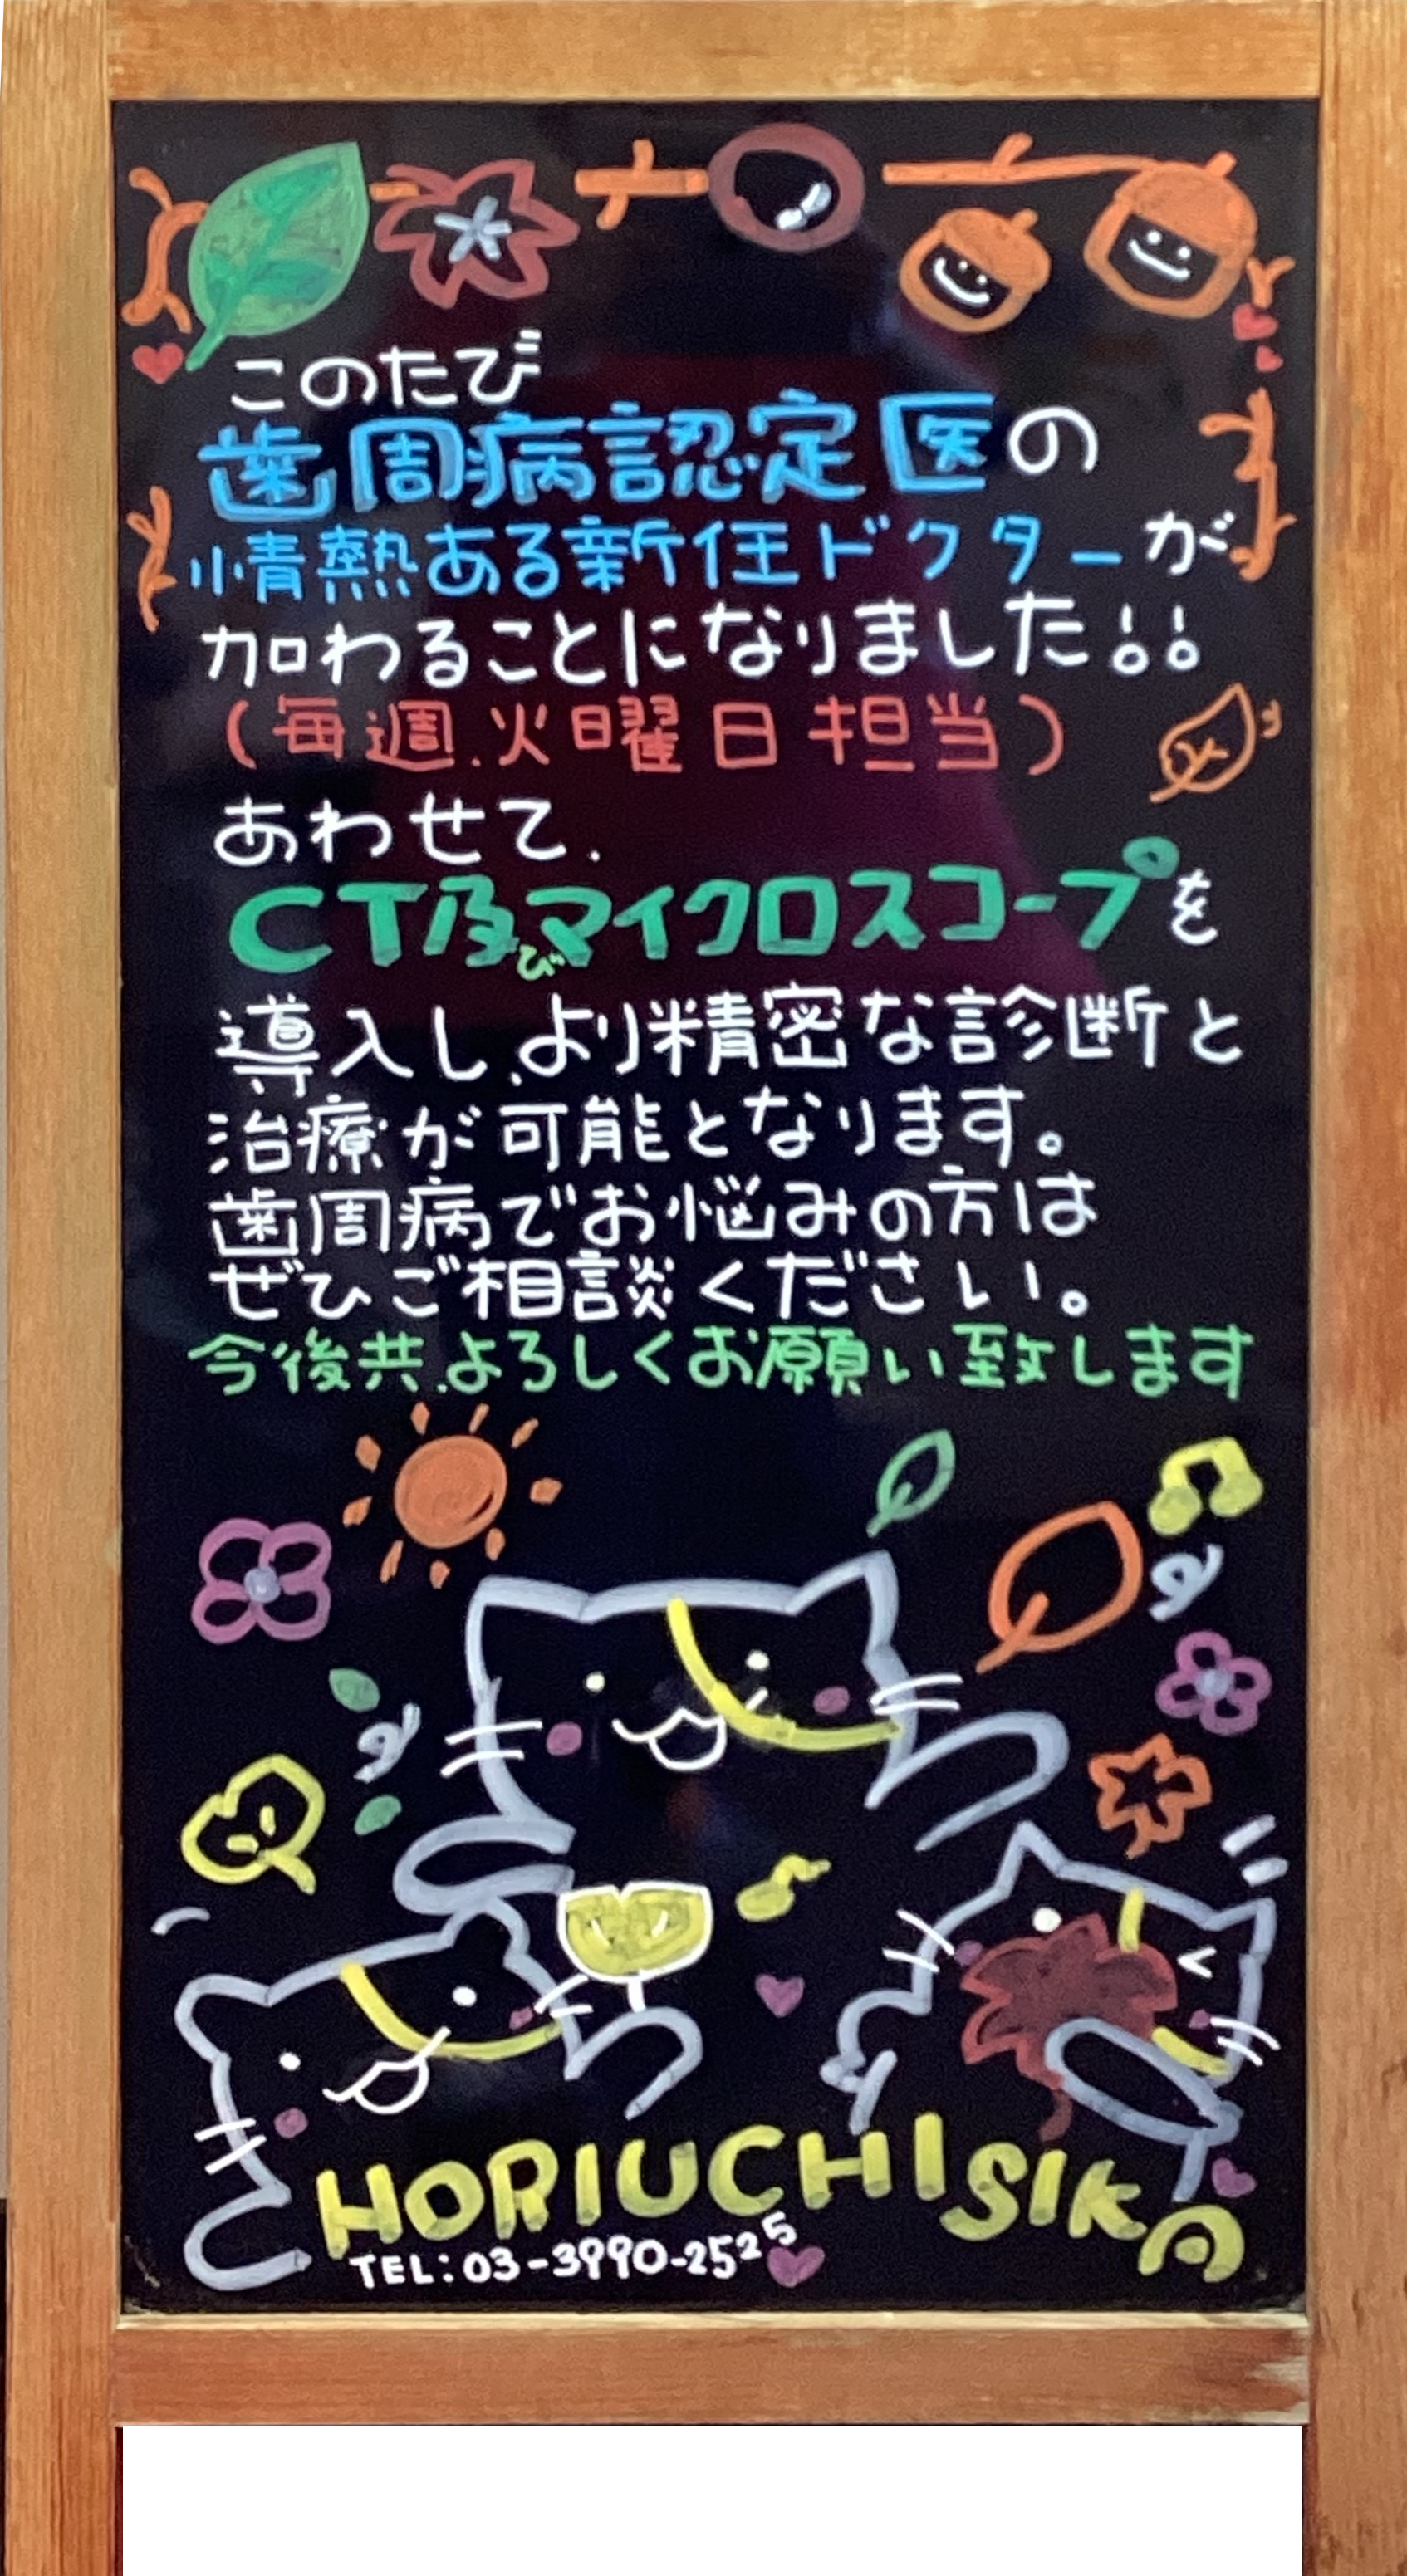 このたび
歯周病認定医の
情熱ある新任ドクターが
加わることになりました!!
(毎週.火曜日担当)
あわせて.
CT及びマイクロスコープを
導入し.より精密な診断と
治療が可能となります。
歯周病でお悩みの方は
ぜひご相談ください。
今後共.よろしくお願い致します
HORIUCHISIKA
TEL:03-3990-2525